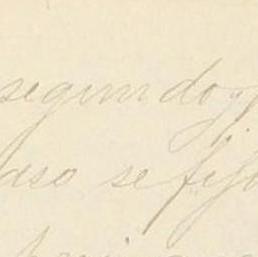 segundo y
aso se fijó